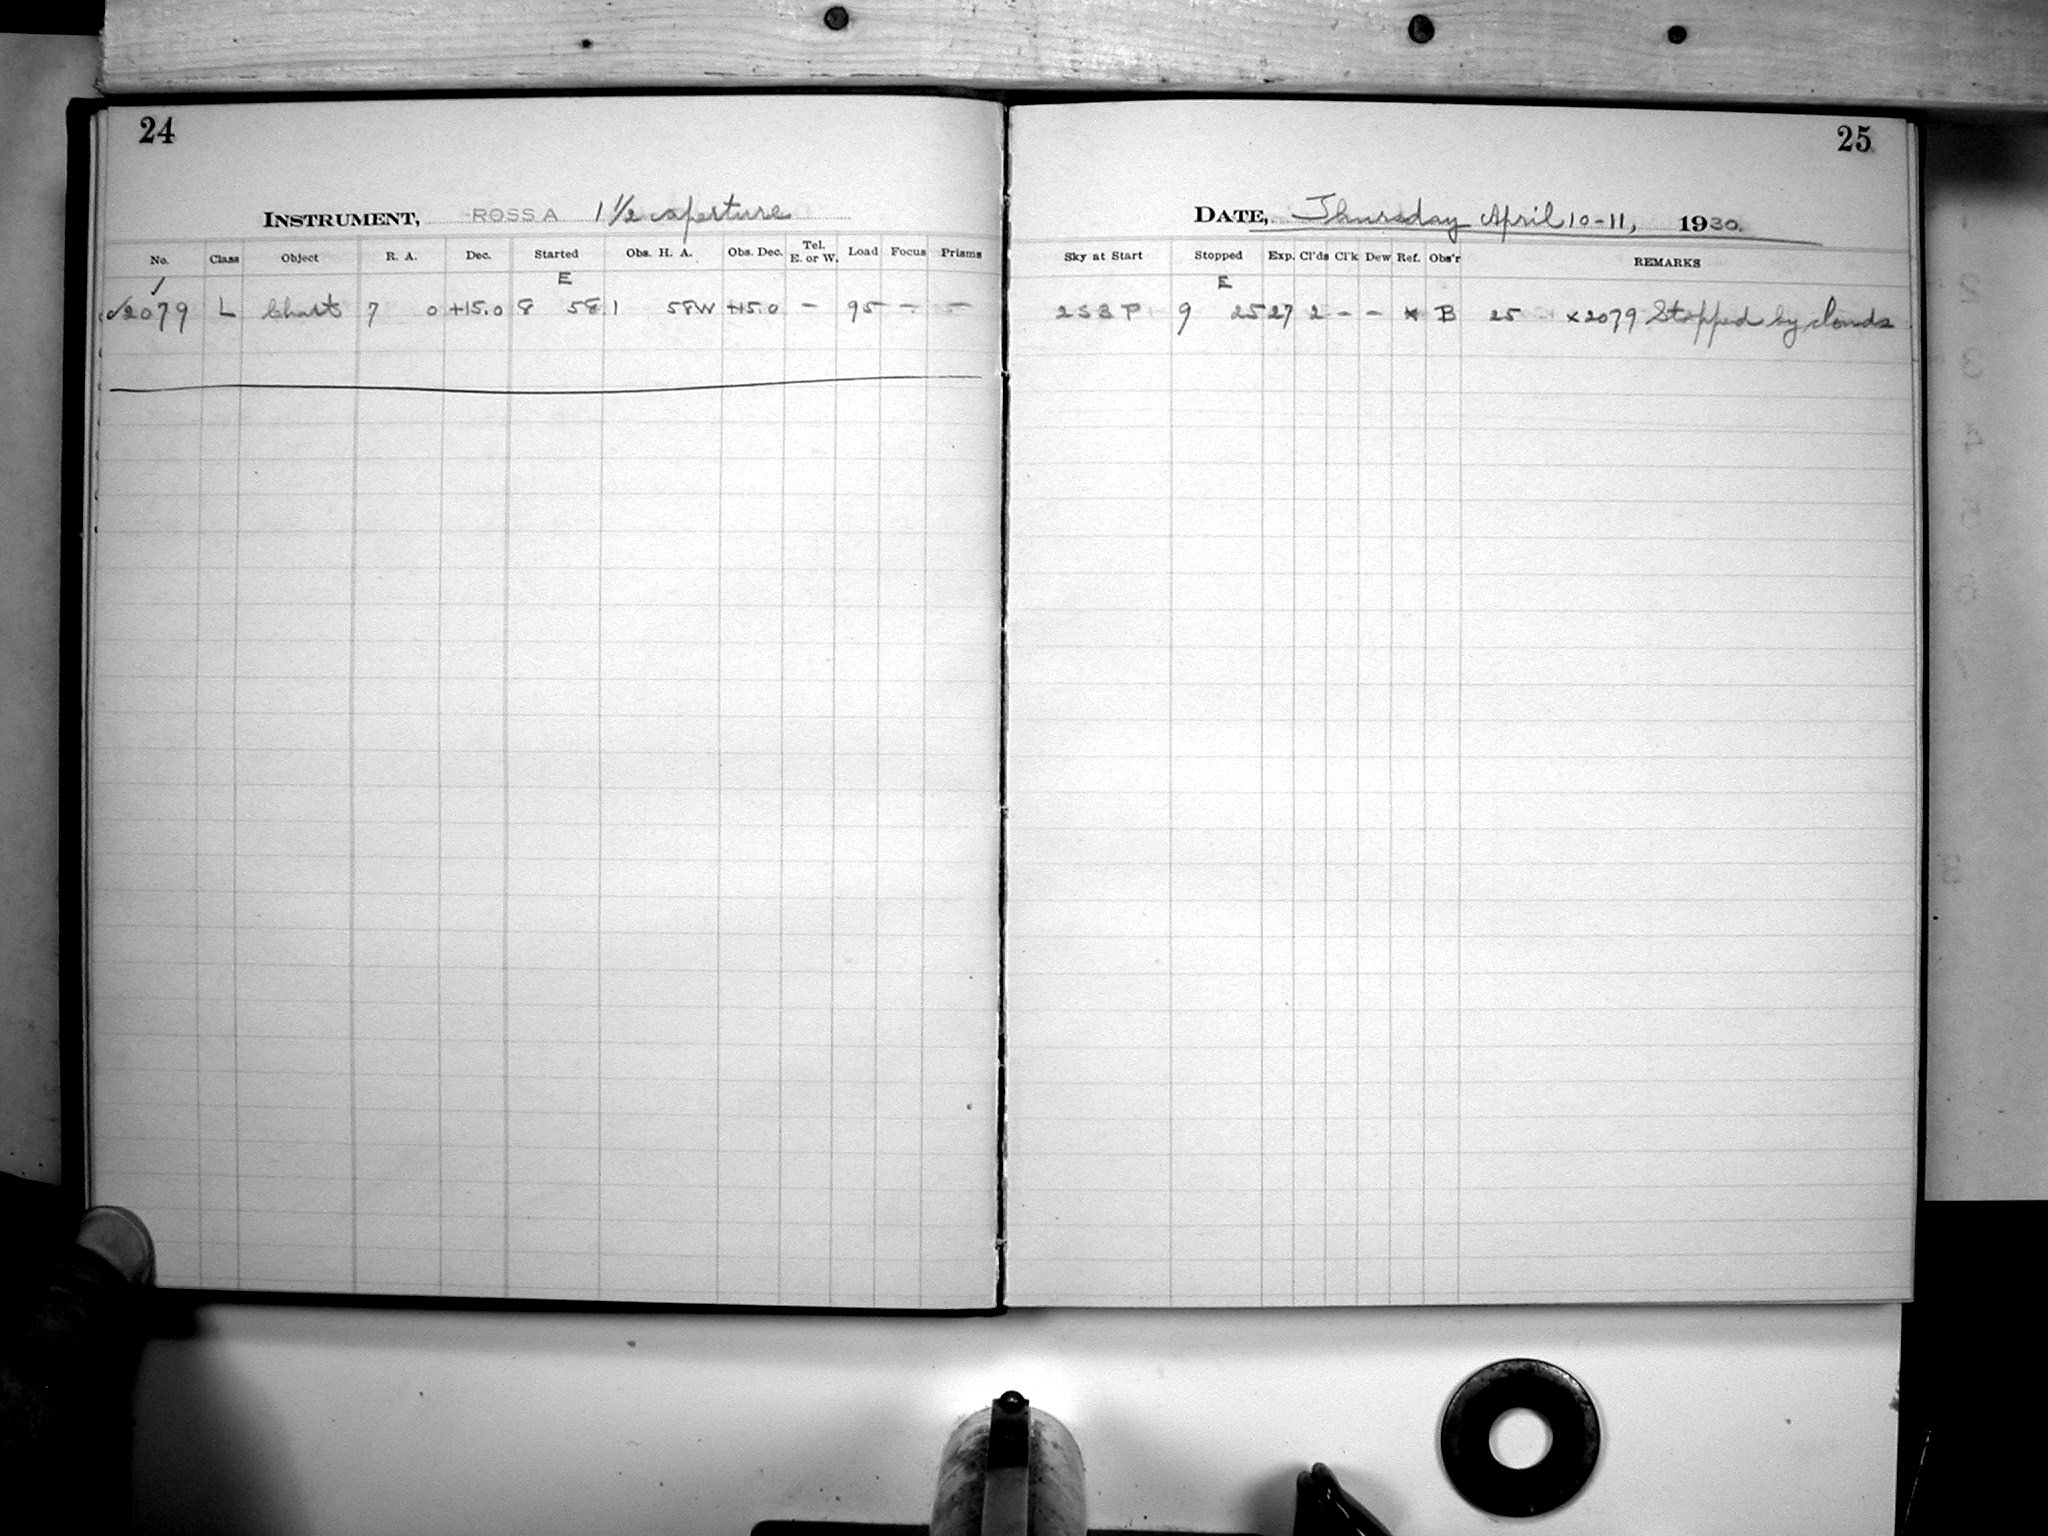 24
INSTRUMENT, ROSS A 1 1/2 aperture
No. Class Object R. A. Dec. Started Obs. H. A. Obs. Dec. Tel. E. or W. Load Focus Prisms
E
✓2079 L Chart 7 0 +15.0 8 58 1 58W +15.0 – 95 – –
25
DATE, Thursday April 10-11, 1930.
Sky at Start Stopped Exp. Cl'ds Cl'k Dew Ref. Obs'r REMARKS
E
2 S 3 P 9 25 27 2 – – * B 25 x 2079 Stopped by clouds